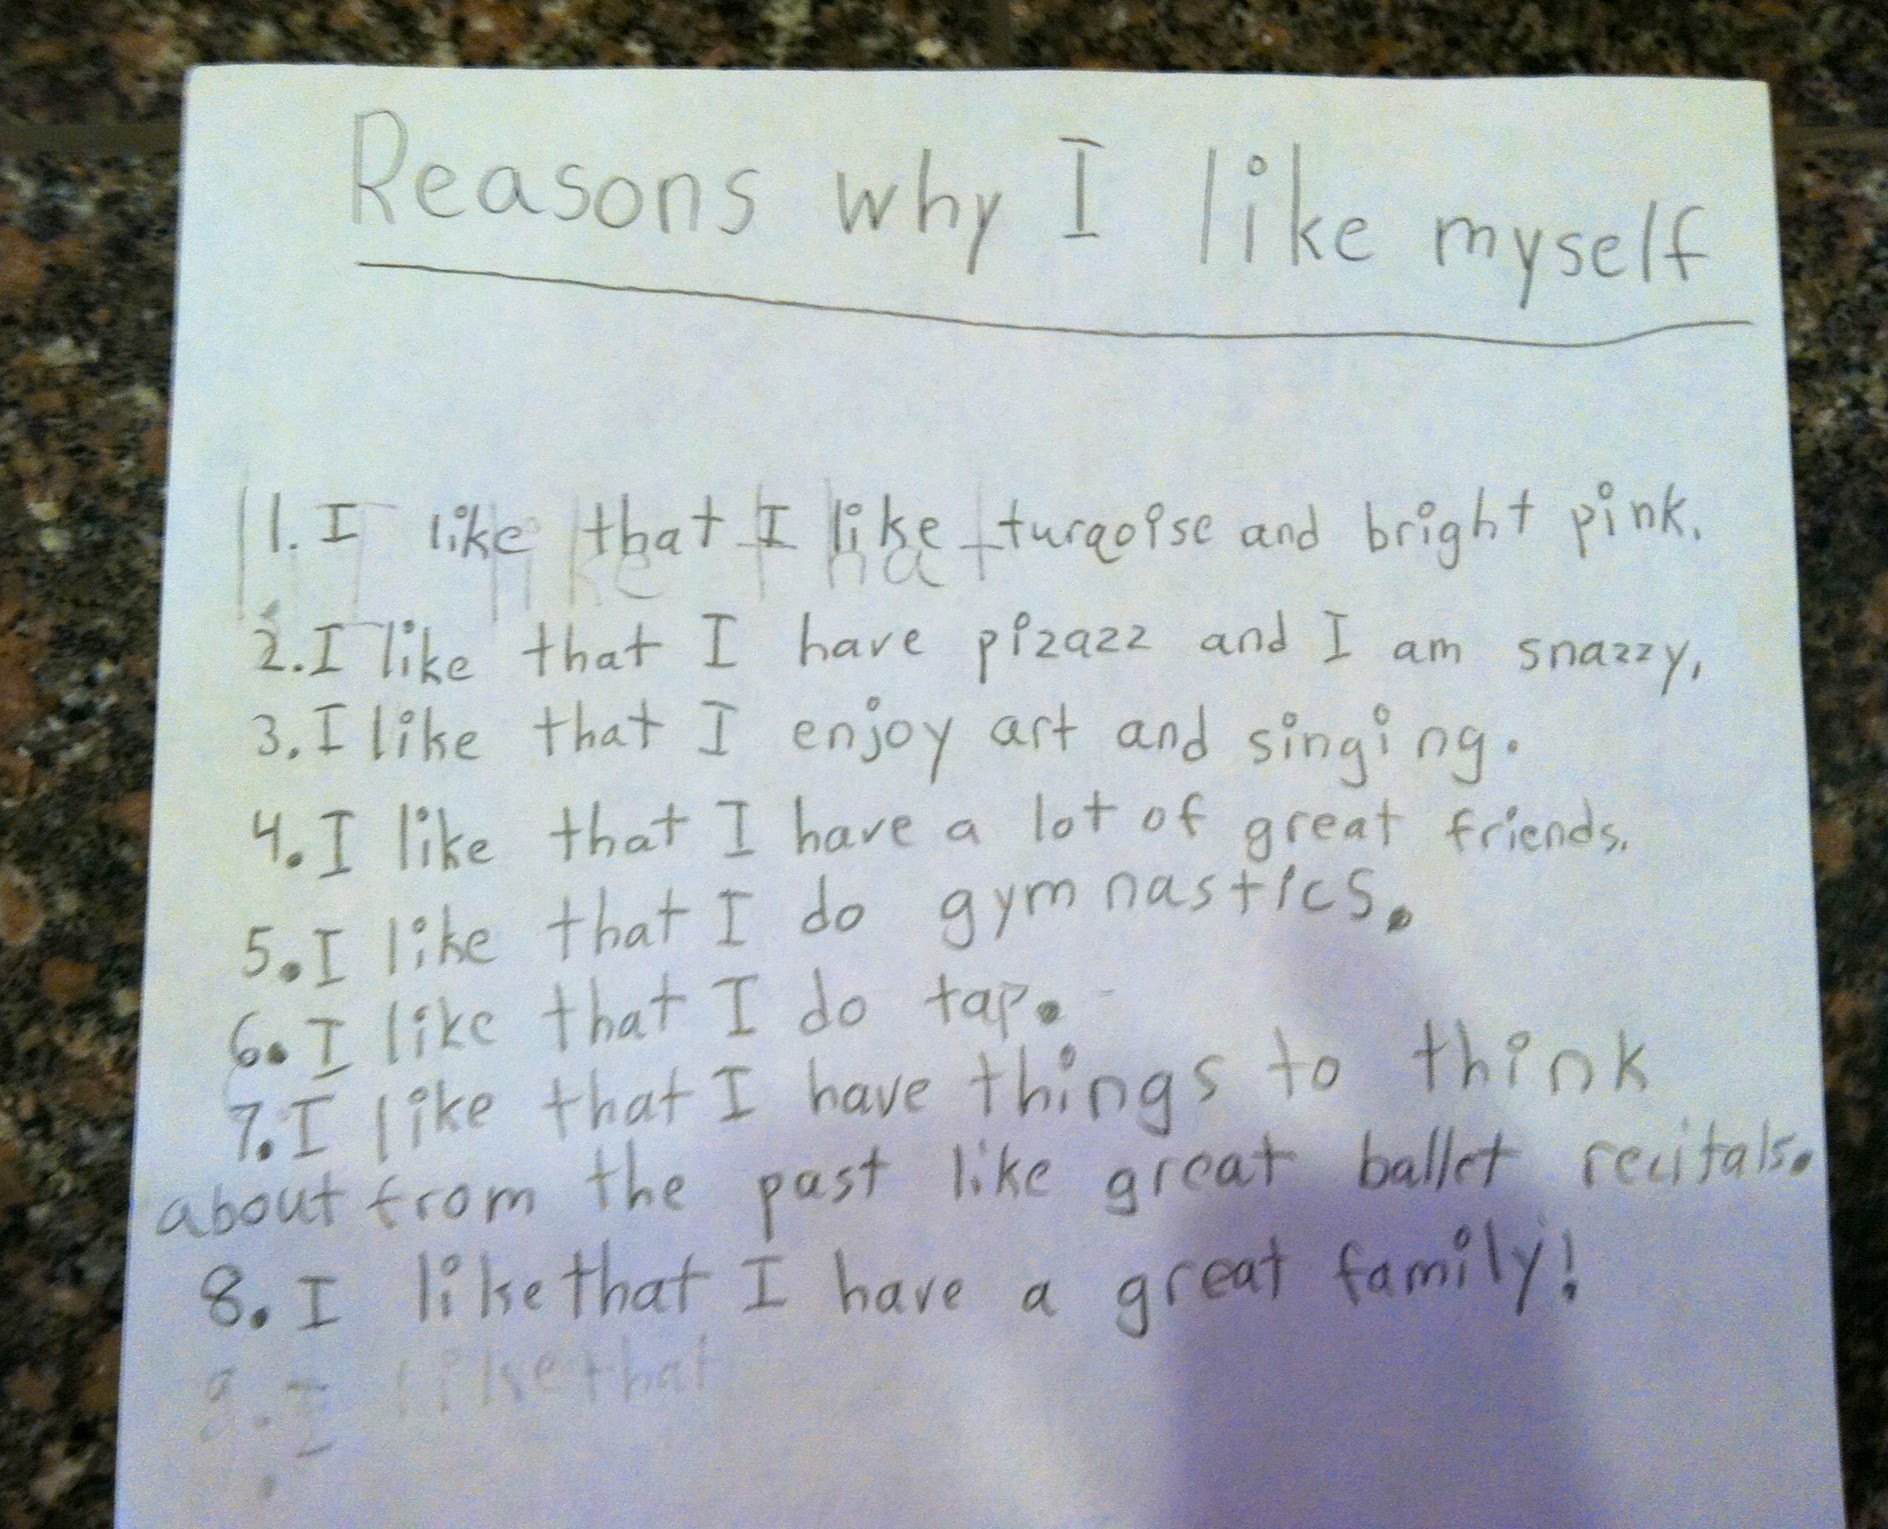 Reasons why I like myself
1. I like that I like turqoise and bright pink.
2. I like that I have pizazz and I am snazzy.
3. I like that I enjoy art and singing.
4. I like that I have a lot of great friends.
5. I like that I do gymnastics.
6. I like that I do tap.
7. I like that I have things to think
about from the past like great ballet recitals.
8. I like that I have a great family!
9. I like that